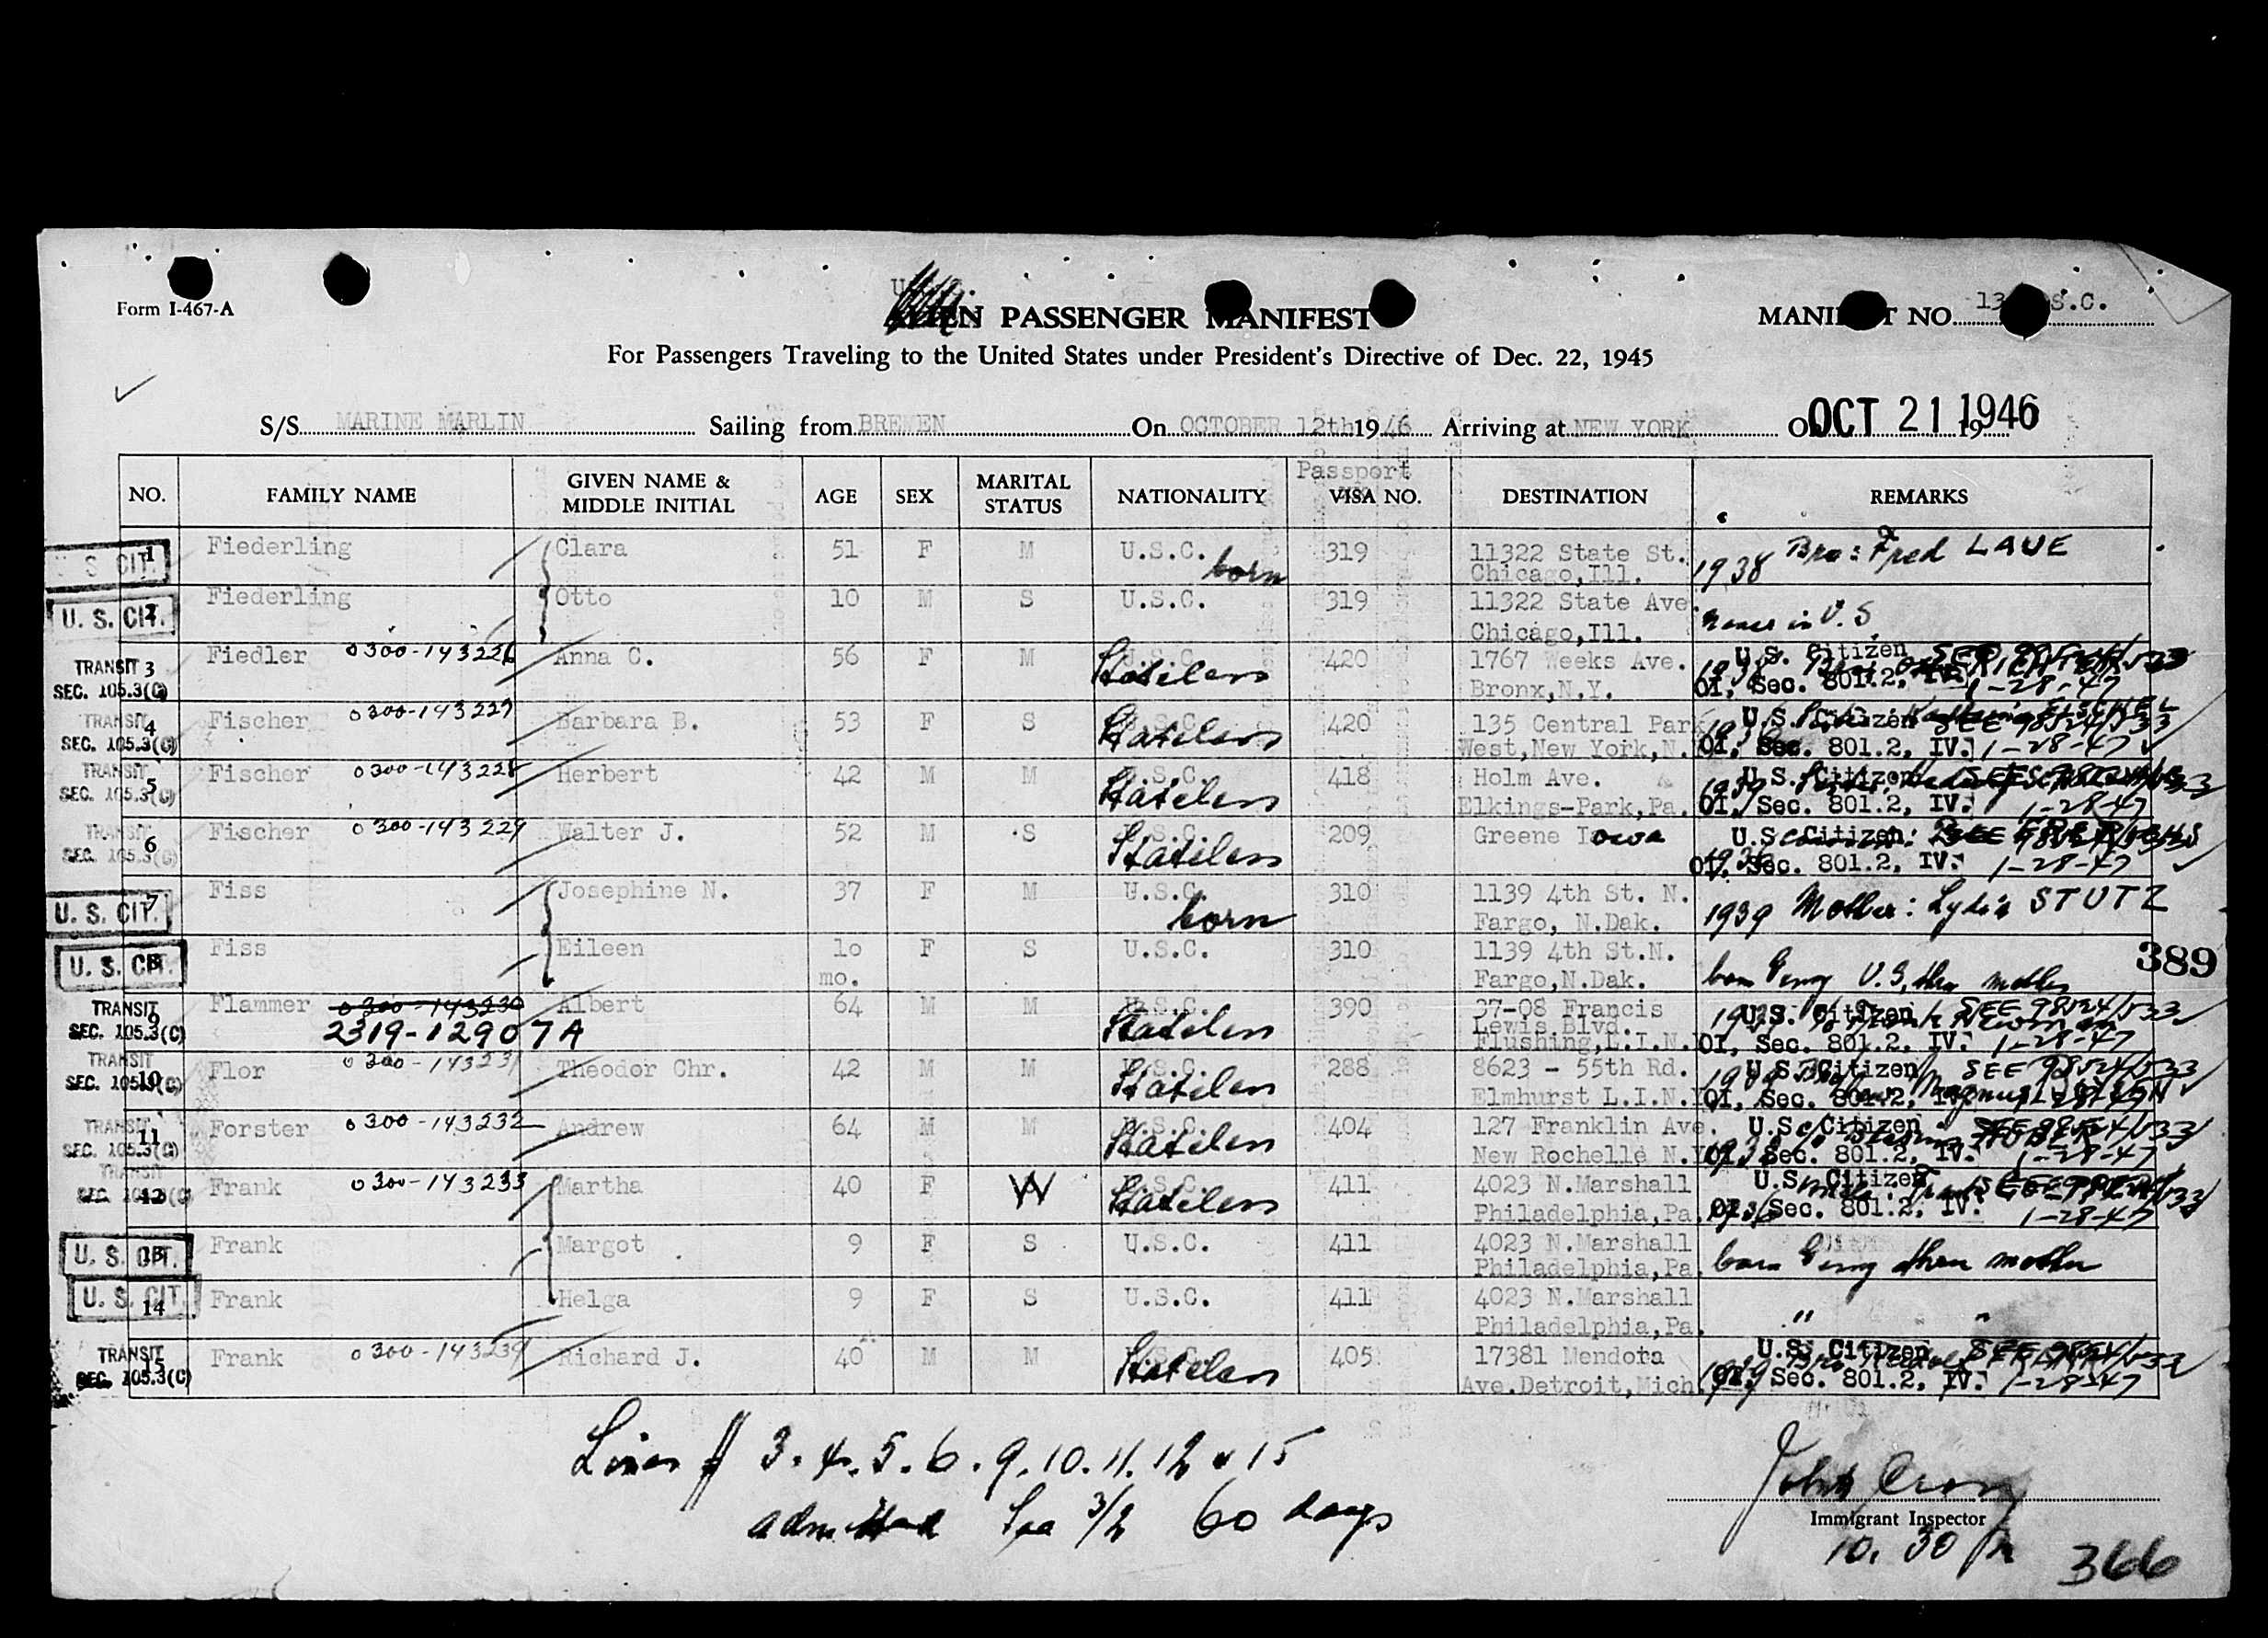 Form I-467-A
PASSENGER MANIFEST
MANIFEST NO. 13 S.C.
For Passengers Traveling to the United States under President's Directive of Dec. 22, 1945
S/S MARINE MARLIN Sailing from BREMEN On OCTOBER 12th 1946 Arriving at NEW YORK On OCT 21 1946
NO. FAMILY NAME GIVEN NAME & MIDDLE INITIAL AGE SEX MARITAL STATUS NATIONALITY Passport VISA NO. DESTINATION REMARKS
U. S. CIT. 1 Fiederling Clara 51 F M U.S.C. born 319 11322 State St. Chicago, Ill. 1938 Bro: Fred LAUE
U. S. CIT. 2 Fiederling Otto 10 M S U.S.C. 319 11322 State Ave. Chicago, Ill. never in U.S.
TRANSIT SEC. 105.3(C) 3 Fiedler 0300-143226 Anna C. 56 F M Stateless 420 1767 Weeks Ave. Bronx, N.Y. U.S. Citizen OI, Sec. 801.2, IV. 1-28-47
TRANSIT SEC. 105.3(C) 4 Fischer 0300-143227 Barbara B. 53 F S Stateless 420 135 Central Park West, New York, N. U.S. Citizen SEE 98524/533 OI, Sec. 801.2, IV. 1-28-47
TRANSIT SEC. 105.3(C) 5 Fischer 0300-143228 Herbert 42 M M Stateless 418 Holm Ave. Elkings-Park, Pa. U.S. Citizen OI, Sec. 801.2, IV. 1-28-47
TRANSIT SEC. 105.3(C) 6 Fischer 0300-143229 Walter J. 52 M S Stateless 209 Greene Iowa U.S. Citizen OI, Sec. 801.2, IV. 1-28-47
U. S. CIT. 7 Fiss Josephine N. 37 F M U.S.C. born 310 1139 4th St. N. Fargo, N.Dak. 1939 Mother: Lydia STUTZ
U. S. CIT. 8 Fiss Eileen 10 mo. F S U.S.C. 310 1139 4th St.N. Fargo, N.Dak. born Germy U.S. thru mother
389
TRANSIT SEC. 105.3(C) 9 Flammer 0300-143230 2319-12907A Albert 64 M M Stateless 390 37-08 Francis Lewis Blvd. Flushing, L.I.N. U.S. Citizen SEE 98524/533 OI, Sec. 801.2, IV. 1-28-47
TRANSIT SEC. 105.3(C) 10 Flor 0300-143231 Theodor Chr. 42 M M Stateless 288 8623 - 55th Rd. Elmhurst L.I.N. U.S. Citizen SEE 98524/533 OI, Sec. 801.2, IV.
TRANSIT SEC. 105.3(C) 11 Forster 0300-143232 Andrew 64 M M Stateless 404 127 Franklin Ave. New Rochelle N.Y. U.S. Citizen OI, Sec. 801.2, IV. 1-28-47
TRANSIT SEC. 105.3(C) 12 Frank 0300-143233 Martha 40 F W Stateless 411 4023 N.Marshall Philadelphia, Pa. U.S. Citizen OI, Sec. 801.2, IV. 1-28-47
U. S. CIT. 13 Frank Margot 9 F S U.S.C. 411 4023 N.Marshall Philadelphia, Pa. born Germy thru mother
U. S. CIT. 14 Frank Helga 9 F S U.S.C. 411 4023 N.Marshall Philadelphia, Pa. " "
TRANSIT SEC. 105.3(C) 15 Frank 0300-143234 Richard J. 40 M M Stateless 405 17381 Mendota Ave. Detroit, Mich. U.S. Citizen OI, Sec. 801.2, IV. 1-28-47
Lines # 3. 4. 5. 6. 9. 10. 11. 12 & 15
admitted Sec 3/2 60 days
Immigrant Inspector
10. 30
366